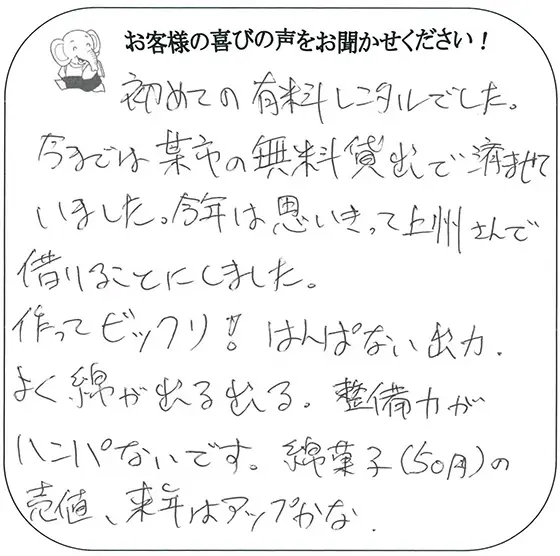 お客様の喜びの声をお聞かせください！
初めての有料レンタルでした。
今までは某市の無料貸出で済ませて
いました。今年は思いきって上州さんで
借りることにしました。
作ってビックリ！はんぱない出力.
よく綿が出る出る。整備力が
ハンパないです。綿菓子(50円)の
売値、来年はアップかな.